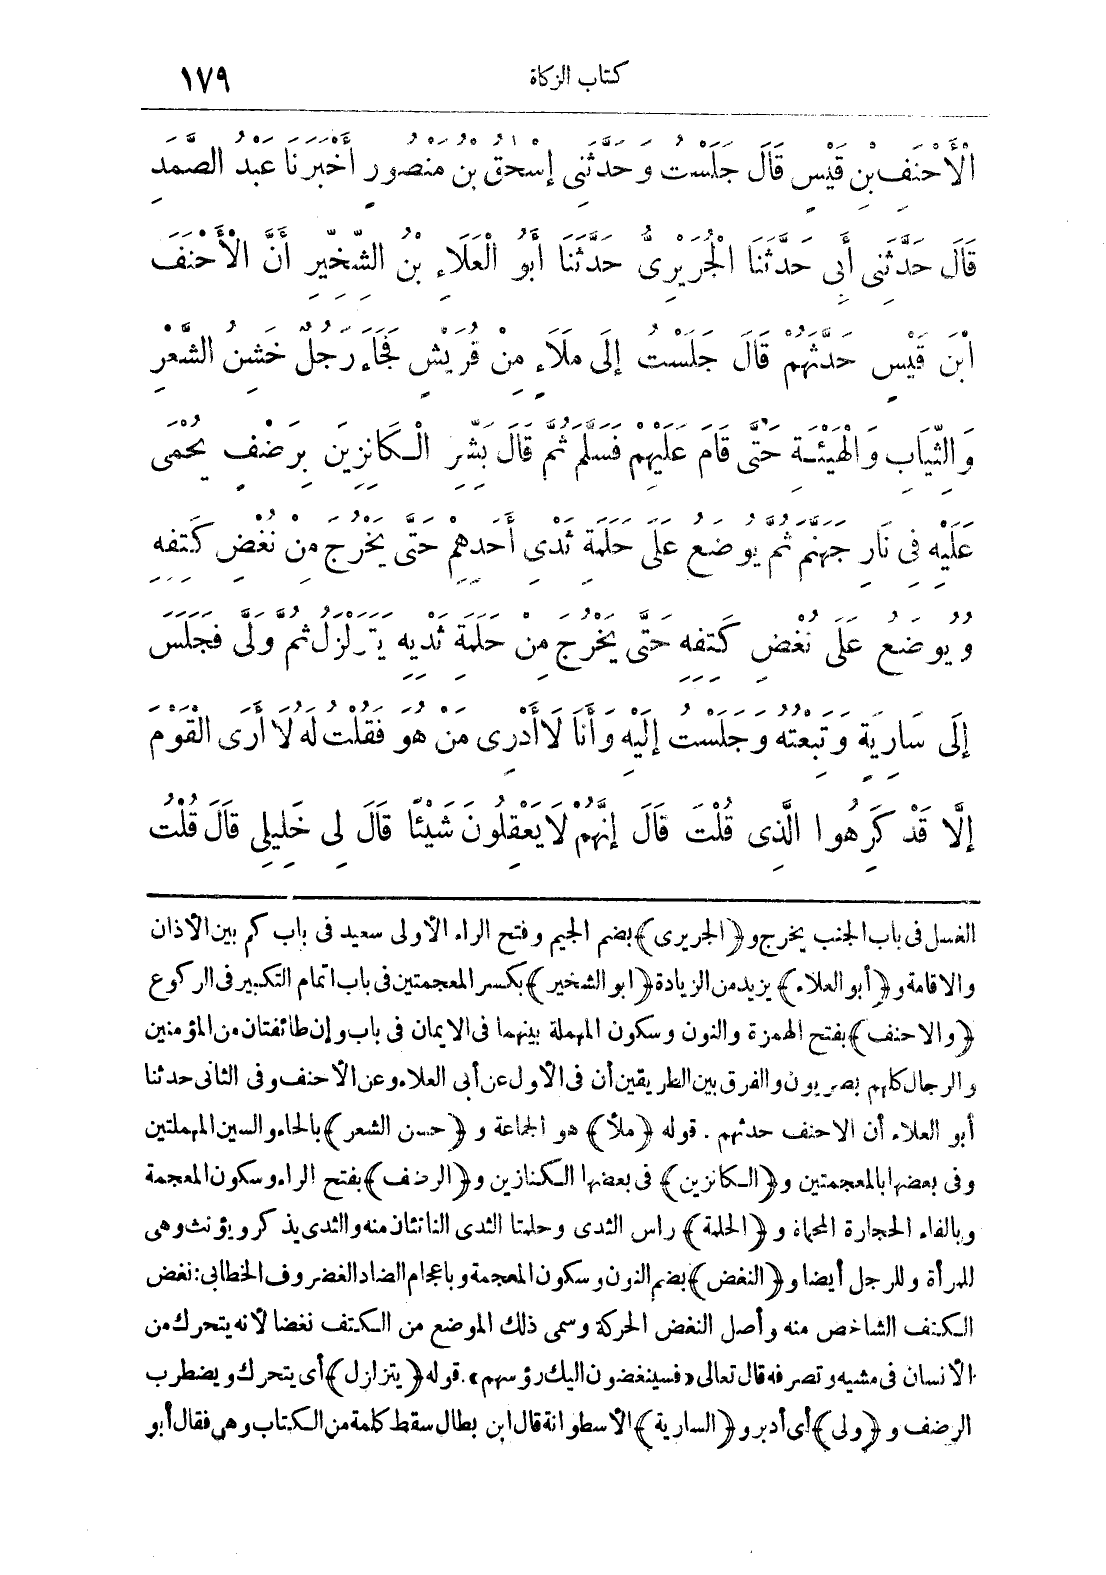 كتاب الزكاة ١٧٩
الْأَحْنَفِ بْنِ قَيْسٍ قَالَ جَلَسْتُ وَحَدَّثَنِى إِسْحٰقُ بْنُ مَنْصُورٍ أَخْبَرَنَا عَبْدُ الصَّمَدِ
قَالَ حَدَّثَنِى أَبِى حَدَّثَنَا الْجُرَيْرِىُّ حَدَّثَنَا أَبُو الْعَلَاءِ بْنُ الشِّخِّيرِ أَنَّ الْأَحْنَفَ
ابْنَ قَيْسٍ حَدَّثَهُمْ قَالَ جَلَسْتُ إِلَى مَلَاءٍ مِنْ قُرَيْشٍ فَجَاءَ رَجُلٌ خَشِنُ الشَّعْرِ
وَالثِّيَابِ وَالْهَيْئَةِ حَتَّى قَامَ عَلَيْهِمْ فَسَلَّمَ ثُمَّ قَالَ بَشِّرِ الْكَانِزِينَ بِرَضْفٍ يُحْمَى
عَلَيْهِ فِى نَارِ جَهَنَّمَ ثُمَّ يُوضَعُ عَلَى حَلَمَةِ ثَدْىِ أَحَدِهِمْ حَتَّى يَخْرُجَ مِنْ نُغْضِ كَتِفِهِ
وَيُوضَعُ عَلَى نُغْضِ كَتِفِهِ حَتَّى يَخْرُجَ مِنْ حَلَمَةِ ثَدْيِهِ يَتَزَلْزَلُ ثُمَّ وَلَّى فَجَلَسَ
إِلَى سَارِيَةٍ وَتَبِعْتُهُ وَجَلَسْتُ إِلَيْهِ وَأَنَا لَا أَدْرِى مَنْ هُوَ فَقُلْتُ لَهُ لَا أُرَى الْقَوْمَ
إِلَّا قَدْ كَرِهُوا الَّذِى قُلْتَ قَالَ إِنَّهُمْ لَا يَعْقِلُونَ شَيْئًا قَالَ لِى خَلِيلِى قَالَ قُلْتُ
الغسل فى باب الجنب يخرج و﴿الجريرى﴾ بضم الجيم وفتح الراء الأولى سعيد فى باب كم بين الأذان
والاقامة و﴿أبو العلاء﴾ يزيد من الزيادة ﴿ابو الشخير﴾ بكسر المعجمتين فى باب اتمام التكبير فى الركوع
﴿والاحنف﴾ بفتح الهمزة والنون وسكون المهملة بينهما فى الايمان فى باب وإن طائفتان من المؤمنين
والرجال كلهم بصريون والفرق بين الطريقين أن فى الأول عن أبى العلاء وعن الأحنف وفى الثانى حدثنا
أبو العلاء أن الاحنف حدثهم . قوله ﴿ملأ﴾ هو الجماعة و﴿حسن الشعر﴾ بالحاء والسين المهملتين
وفى بعضها بالمعجمتين و﴿الكانزين﴾ فى بعضها الكنازين و﴿الرضف﴾ بفتح الراء وسكون المعجمة
وبالفاء الحجارة المحماة و﴿الحلمة﴾ راس الثدى وحلمتا الثدى الناتئتان منه والثدى يذكر ويؤنث وهى
للمرأة وللرجل أيضا و﴿النغض﴾ بضم النون وسكون المعجمة وباعجام الضاد الغضروف الخطابى: نغض
الكتف الشاخص منه وأصل النغض الحركة وسمى ذلك الموضع من الكتف نغضا لأنه يتحرك من
الانسان فى مشيه وتصرفه قال تعالى «فسينغضون اليك رؤسهم». قوله ﴿يتزلزل﴾ أى يتحرك ويضطرب
الرضف و﴿ولى﴾ أى أدبر و﴿السارية﴾ الأسطوانة قال ابن بطال سقط كلمة من الكتاب وهى فقال أبو